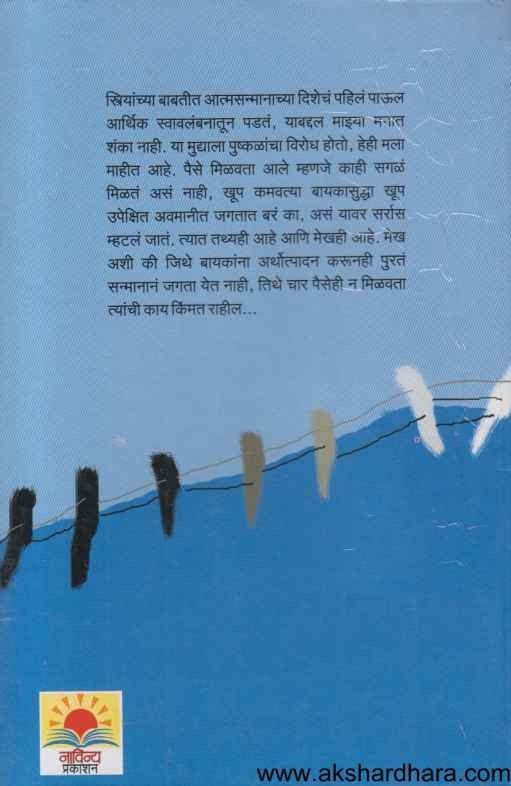 स्त्रियांच्या बाबतीत आत्मसन्मानाच्या दिशेचं पहिलं पाऊल
आर्थिक स्वावलंबनातून पडतं, याबद्दल माझ्या मनात
शंका नाही. या मुद्याला पुष्कळांचा विरोध होतो, हेही मला
माहीत आहे. पैसे मिळवता आले म्हणजे काही सगळं
मिळतं असं नाही, खूप कमवत्या बायकासुद्धा खूप
उपेक्षित अवमानीत जगतात बरं का, असं यावर सर्रास
म्हटलं जातं. त्यात तथ्यही आहे आणि मेखही आहे. मेख
अशी की जिथे बायकांना अर्थोत्पादन करूनही पुरतं
सन्मानानं जगता येत नाही, तिथे चार पैसेही न मिळवता
त्यांची काय किंमत राहील...
नाविन्य
प्रकाशन
www.akshardhara.com